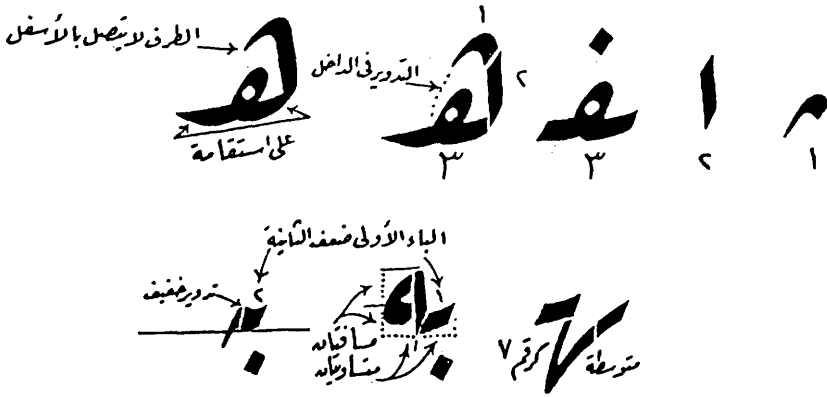 الطرف لا يتصل بالأسفل
على استقامة
١
التدوير في الداخل
٢
٣
٣
٢
١
الباء الأولى ضعف الثانية
٢
تدوير خفيف
١
مسافتان
متساويتان
كرقم ٧
متوسطة